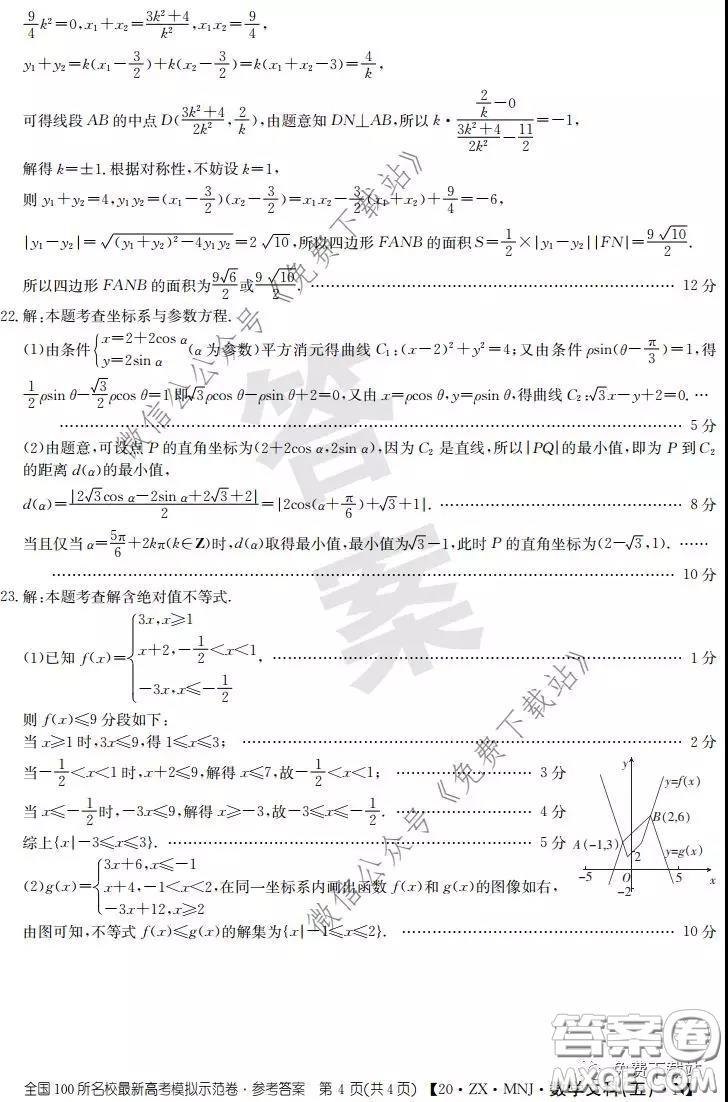 9/4 k²=0,x₁+x₂=(3k²+4)/k²,x₁x₂=9/4,
y₁+y₂=k(x₁-3/2)+k(x₂-3/2)=k(x₁+x₂-3)=4/k,
可得线段 AB 的中点 D((3k²+4)/2k²,2/k),由题意知 DN⊥AB,所以 k·(2/k-0)/((3k²+4)/2k²-11/2)=-1,
解得 k=±1.根据对称性,不妨设 k=1,
则 y₁+y₂=4,y₁y₂=(x₁-3/2)(x₂-3/2)=x₁x₂-3/2(x₁+x₂)+9/4=-6,
|y₁-y₂|=√((y₁+y₂)²-4y₁y₂)=2√10,所以四边形 FANB 的面积 S=1/2×|y₁-y₂||FN|=9√10/2.
所以四边形 FANB 的面积为9√6/2或9√10/2. …… 12 分
22.解:本题考查坐标系与参数方程.
(1)由条件{x=2+2cos α
y=2sin α (α 为参数)平方消元得曲线 C₁:(x-2)²+y²=4;又由条件 ρsin(θ-π/3)=1,得
1/2ρsin θ-√3/2ρcos θ=1 即√3ρcos θ-ρsin θ+2=0,又由 x=ρcos θ,y=ρsin θ,得曲线 C₂:√3x-y+2=0. …
…… 5 分
(2)由题意,可设点 P 的直角坐标为(2+2cos α,2sin α),因为 C₂ 是直线,所以|PQ|的最小值,即为 P 到 C₂
的距离 d(α)的最小值,
d(α)=|2√3cos α-2sin α+2√3+2|/2=|2cos(α+π/6)+√3+1|. …… 8 分
当且仅当 α=5π/6+2kπ(k∈Z)时,d(α)取得最小值,最小值为√3-1,此时 P 的直角坐标为(2-√3,1). ……
…… 10 分
23.解:本题考查解含绝对值不等式.
(1)已知 f(x)={3x,x≥1
x+2,-1/2<x<1, …… 1 分
-3x,x≤-1/2
则 f(x)≤9 分段如下:
当 x≥1 时,3x≤9,得 1≤x≤3; …… 2 分
当-1/2<x<1 时,x+2≤9,解得 x≤7,故-1/2<x<1; …… 3 分
当 x≤-1/2时,-3x≤9,解得 x≥-3,故-3≤x≤-1/2. …… 4 分
综上{x|-3≤x≤3}. …… 5 分
(2)g(x)={3x+6,x≤-1
x+4,-1<x<2,在同一坐标系内画出函数 f(x)和 g(x)的图像如右,
-3x+12,x≥2
由图可知,不等式 f(x)≤g(x)的解集为{x|-1≤x≤2}. …… 10 分
y
y=f(x)
B(2,6)
A(-1,3)
y=g(x)
2
-5
O
5
x
-2
全国 100 所名校最新高考模拟示范卷·参考答案 第 4 页(共 4 页) 【20·ZX·MNJ·数学文科(五) N】
微信公众号《免费下载站》
微信公众号《免费下载站》
答案
答案卷
免费下载站